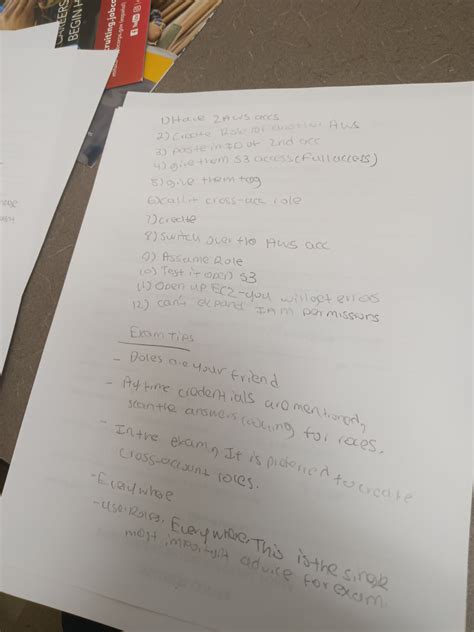 CAREERS
BEGIN H
ruiting.jobco
1) Have 2 AWS accs
2) Create Role for another AWS
3) paste in ID of 2nd acc
4) give them S3 access (full access)
5) give them tag
6) call it cross-acc role
7) create
8) switch over to AWS acc
9) Assume Role
10) Test it out S3
11) Open up EC2 - you will get errors
12) can't expand IAM permissions
Exam tips
- Roles are your friend
- Anytime credentials are mentioned,
scan the answers looking for roles.
- In the exam, It is preferred to create
cross-account roles.
- Everywhere
- Use Roles, Everywhere. This is the single
most important advice for exam.